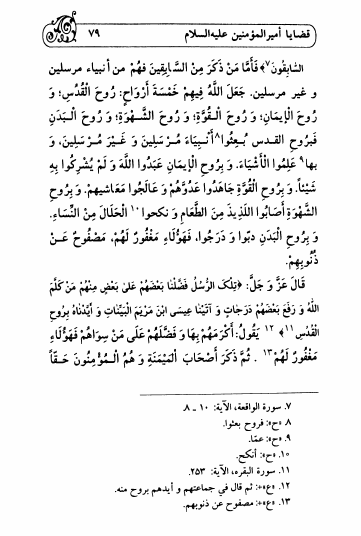 قضايا أميرالمؤمنين عليه‌السلام
٧٩
السَّابِقُونَ٧﴾ فَأَمَّا مَنْ ذَكَرَ مِنَ السَّابِقِينَ فَهُمْ من أنبياء مرسلين
و غير مرسلين. جَعَلَ اللّهُ فِيهِمْ خَمْسَةَ أَرْوَاحٍ: رُوحَ الْقُدُسِ؛ وَ
رُوحَ الْإيمَانِ؛ وَ رُوحَ الْقُوَّةِ؛ وَ رُوحَ الشَّهْوَةِ؛ وَ رُوحَ الْبَدَنِ
فَبِرُوحِ القدس بُعِثُوا٨ أَنْبِيَاءَ مُرْسَلِينَ وَ غَيْرَ مُرْسَلِينَ، وَ
بها٩ عَلِمُوا الْأَشْيَاءَ. وَ بِرُوحِ الْإيمَانِ عَبَدُوا اللّهَ وَ لَمْ يُشْرِكُوا بِهِ
شَيْئاً. وَ بِرُوحِ الْقُوَّةِ جَاهَدُوا عَدُوَّهُمْ وَ عَالَجُوا مَعَاشيهم. وَ بِرُوحِ
الشَّهْوَةِ أَصَابُوا اللَّذِيذَ مِنَ الطَّعَامِ وَ نكحوا١٠ الْحَلَالَ مِنْ النِّسَاءِ.
وَ بِرُوحِ الْبَدَنِ دبّوا وَ دَرَجُوا، فَهَؤُلَاءِ مَغْفُورٌ لَهُمْ، مَصْفُوحٌ عَنْ
ذُنُوبِهِمْ.
قَالَ عَزَّ وَ جَلَّ: ﴿تِلْكَ الرُّسُلُ فَضَّلْنَا بَعْضَهُمْ عَلىٰ بَعْضٍ مِنْهُمْ مَنْ كَلَّمَ
اللّهُ وَ رَفَعَ بَعْضَهُمْ دَرَجَاتٍ وَ آتَيْنَا عِيسَى ابْنَ مَرْيَمَ الْبَيِّنَاتِ وَ أَيَّدْنَاهُ بِرُوحِ
الْقُدُسِ١١﴾ ١٢ يَقُولُ: أَكْرَمَهُمْ بِهَا وَ فَضَّلَهُمْ عَلَى مَنْ سِوَاهُمْ فَهَؤُلَاءِ
مَغْفُورٌ لَهُمْ١٣. ثُمَّ ذَكَرَ أَصْحَابَ الْمَيْمَنَةِ وَ هُمُ الْمُؤْمِنُونَ حَقّاً
٧. سورة الواقعة، الآية: ١٠ ـ ٨
٨ «ح»: فروح بعثوا.
٩. «ح»: عمّا.
١٠. «ح»: أنكح.
١١. سورة البقره، الآية: ٢٥٣.
١٢. «ع+»: ثم قال في جماعتهم و أيدهم بروح منه.
١٣. «ع+»: مصفوح عن ذنوبهم.